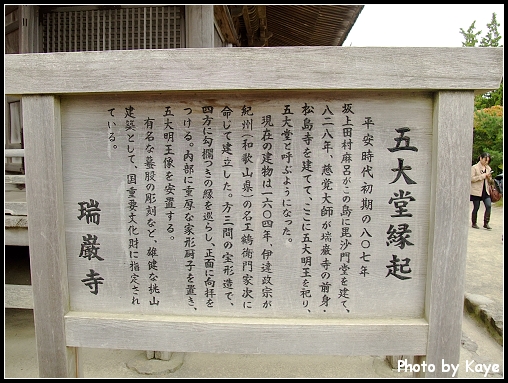 五大堂縁起
平安時代初期の八〇七年
坂上田村麻呂がこの島に毘沙門堂を建て、
八二八年、慈覚大師が瑞巌寺の前身・
松島寺を建てて、ここに五大明王を祀り、
五大堂と呼ぶようになった。
現在の建物は一六〇四年、伊達政宗が
紀州(和歌山県)の名工鶴衛門家次に
命じて建立した。方三間の宝形造で、
四方に勾欄つきの縁を巡らし、正面に向拝を
つける。内部に重厚な家形厨子を置き、
五大明王像を安置する。
有名な蟇股の彫刻など、雄健な桃山
建築として、国重要文化財に指定され
ている。
瑞巌寺
Photo by Kaye